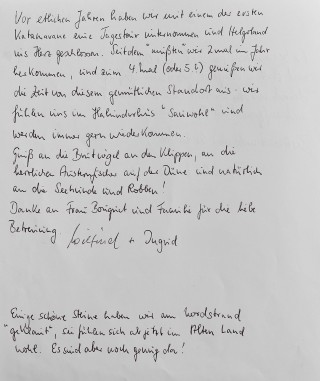 Vor etlichen Jahren haben wir mit einem der ersten
Katamarane eine Tagestour unternommen und Helgoland
ins Herz geschlossen. Seitdem "mußten" wir 2 mal im Jahr
herkommen, und zum 4. mal (oder 5.?) genießen wir
die Zeit von diesem gemütlichen Standort aus - wir
fühlen uns im "Sauwohl" und
werden immer gern wiederkommen.
Gruß an die Brutvögel an den Klippen, an die
herrlichen Austernfischer auf der Düne und natürlich
an die Seehunde und Robben!
Danke an Frau und Familie für die liebe
Betreuung + Ingrid
Einige schöne Steine haben wir am Nordstrand
"geklaut", sie fühlen sich ab jetzt im Alten Land
wohl. Es sind aber noch genug da!